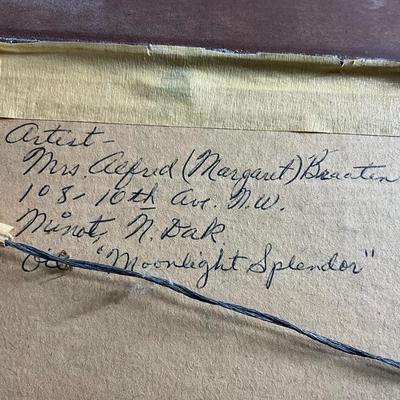 Artist-
Mrs Alfred (Margaret) Braaten
108-10th Ave. N.W.
Minot, N. Dak
Oil "Moonlight Splendor"